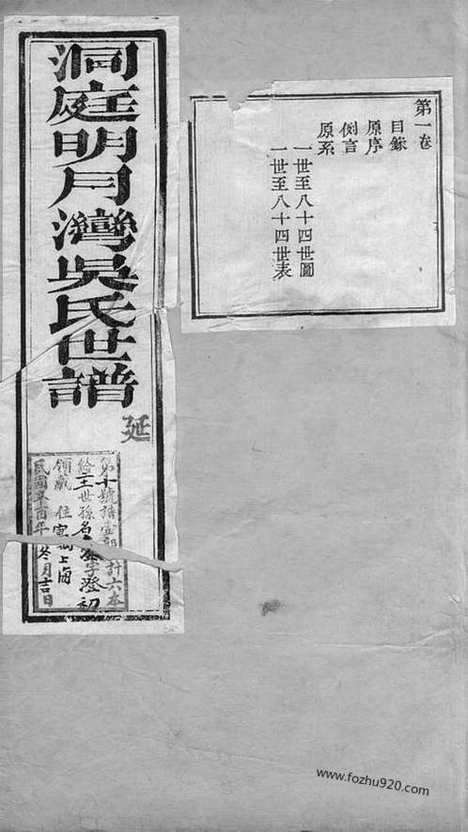 第一卷
目錄
原序
例言
原系
一世至八十四世圖
一世至八十四世表
洞庭明月灣吳氏世譜
延
第十號 計六本
給二十世孫名 字澄初
領藏 住 上海
民國辛酉年 冬月吉日
www.fozhu920.com